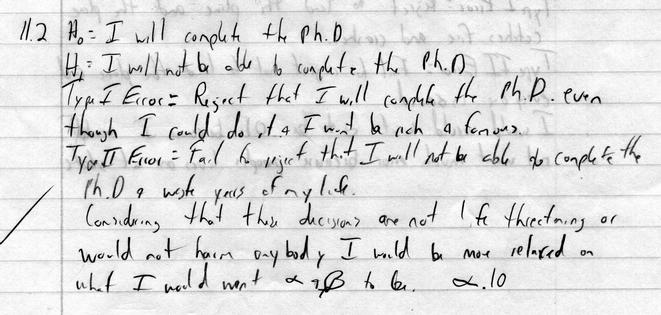 11.2 H₀ = I will complete the Ph.D
H₁ = I will not be able to complete the Ph.D
Type I Error = Reject that I will complete the Ph.D. even
though I could do it & I won't be rich & famous.
Type II Error = Fail to reject that I will not be able to complete the
Ph.D & waste years of my life.
Considering that these decisions are not life threatening or
would not harm anybody I would be more relaxed on
what I would want α & β to be. α .10